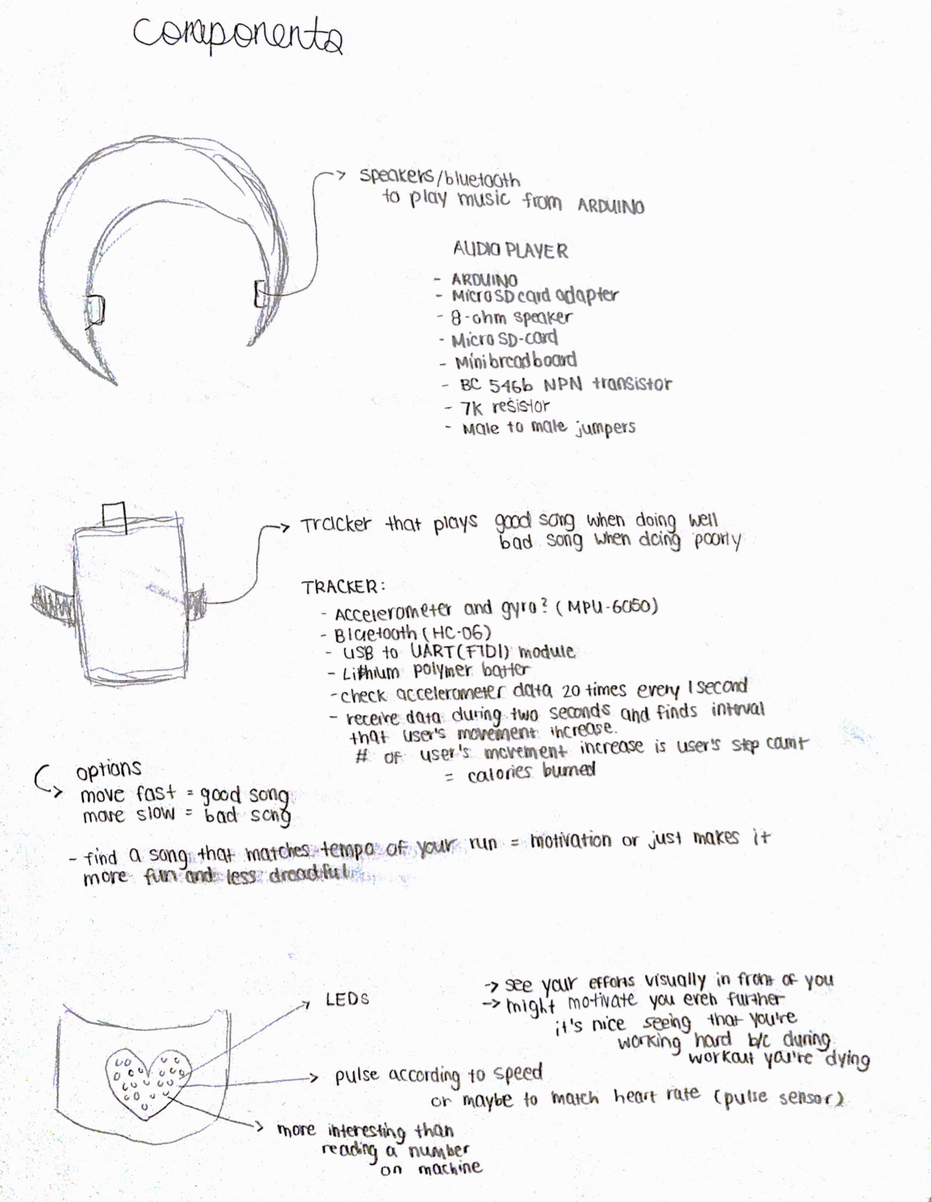 components
speakers/bluetooth
to play music from ARDUINO
AUDIO PLAYER
- ARDUINO
- MicroSD card adapter
- 8-ohm speaker
- Micro SD-card
- Mini breadboard
- BC 546b NPN transistor
- 7K resistor
- Male to male jumpers
Tracker that plays good song when doing well
bad song when doing poorly
TRACKER:
- Accelerometer and gyro? (MPU-6050)
- Bluetooth (HC-06)
- USB to UART (FTDI) module
- Lithium polymer batter
- check accelerometer data 20 times every 1 second
- receive data during two seconds and finds interval
that user's movement increase.
# of user's movement increase is user's step count
= calories burned
options
move fast = good song
move slow = bad song
- find a song that matches tempo of your run = motivation or just makes it
more fun and less dreadful
LEDS
→ see your efforts visually in front of you
→ might motivate you even further
it's nice seeing that you're
working hard b/c during
workout you're dying
pulse according to speed
or maybe to match heart rate (pulse sensor)
more interesting than
reading a number
on machine